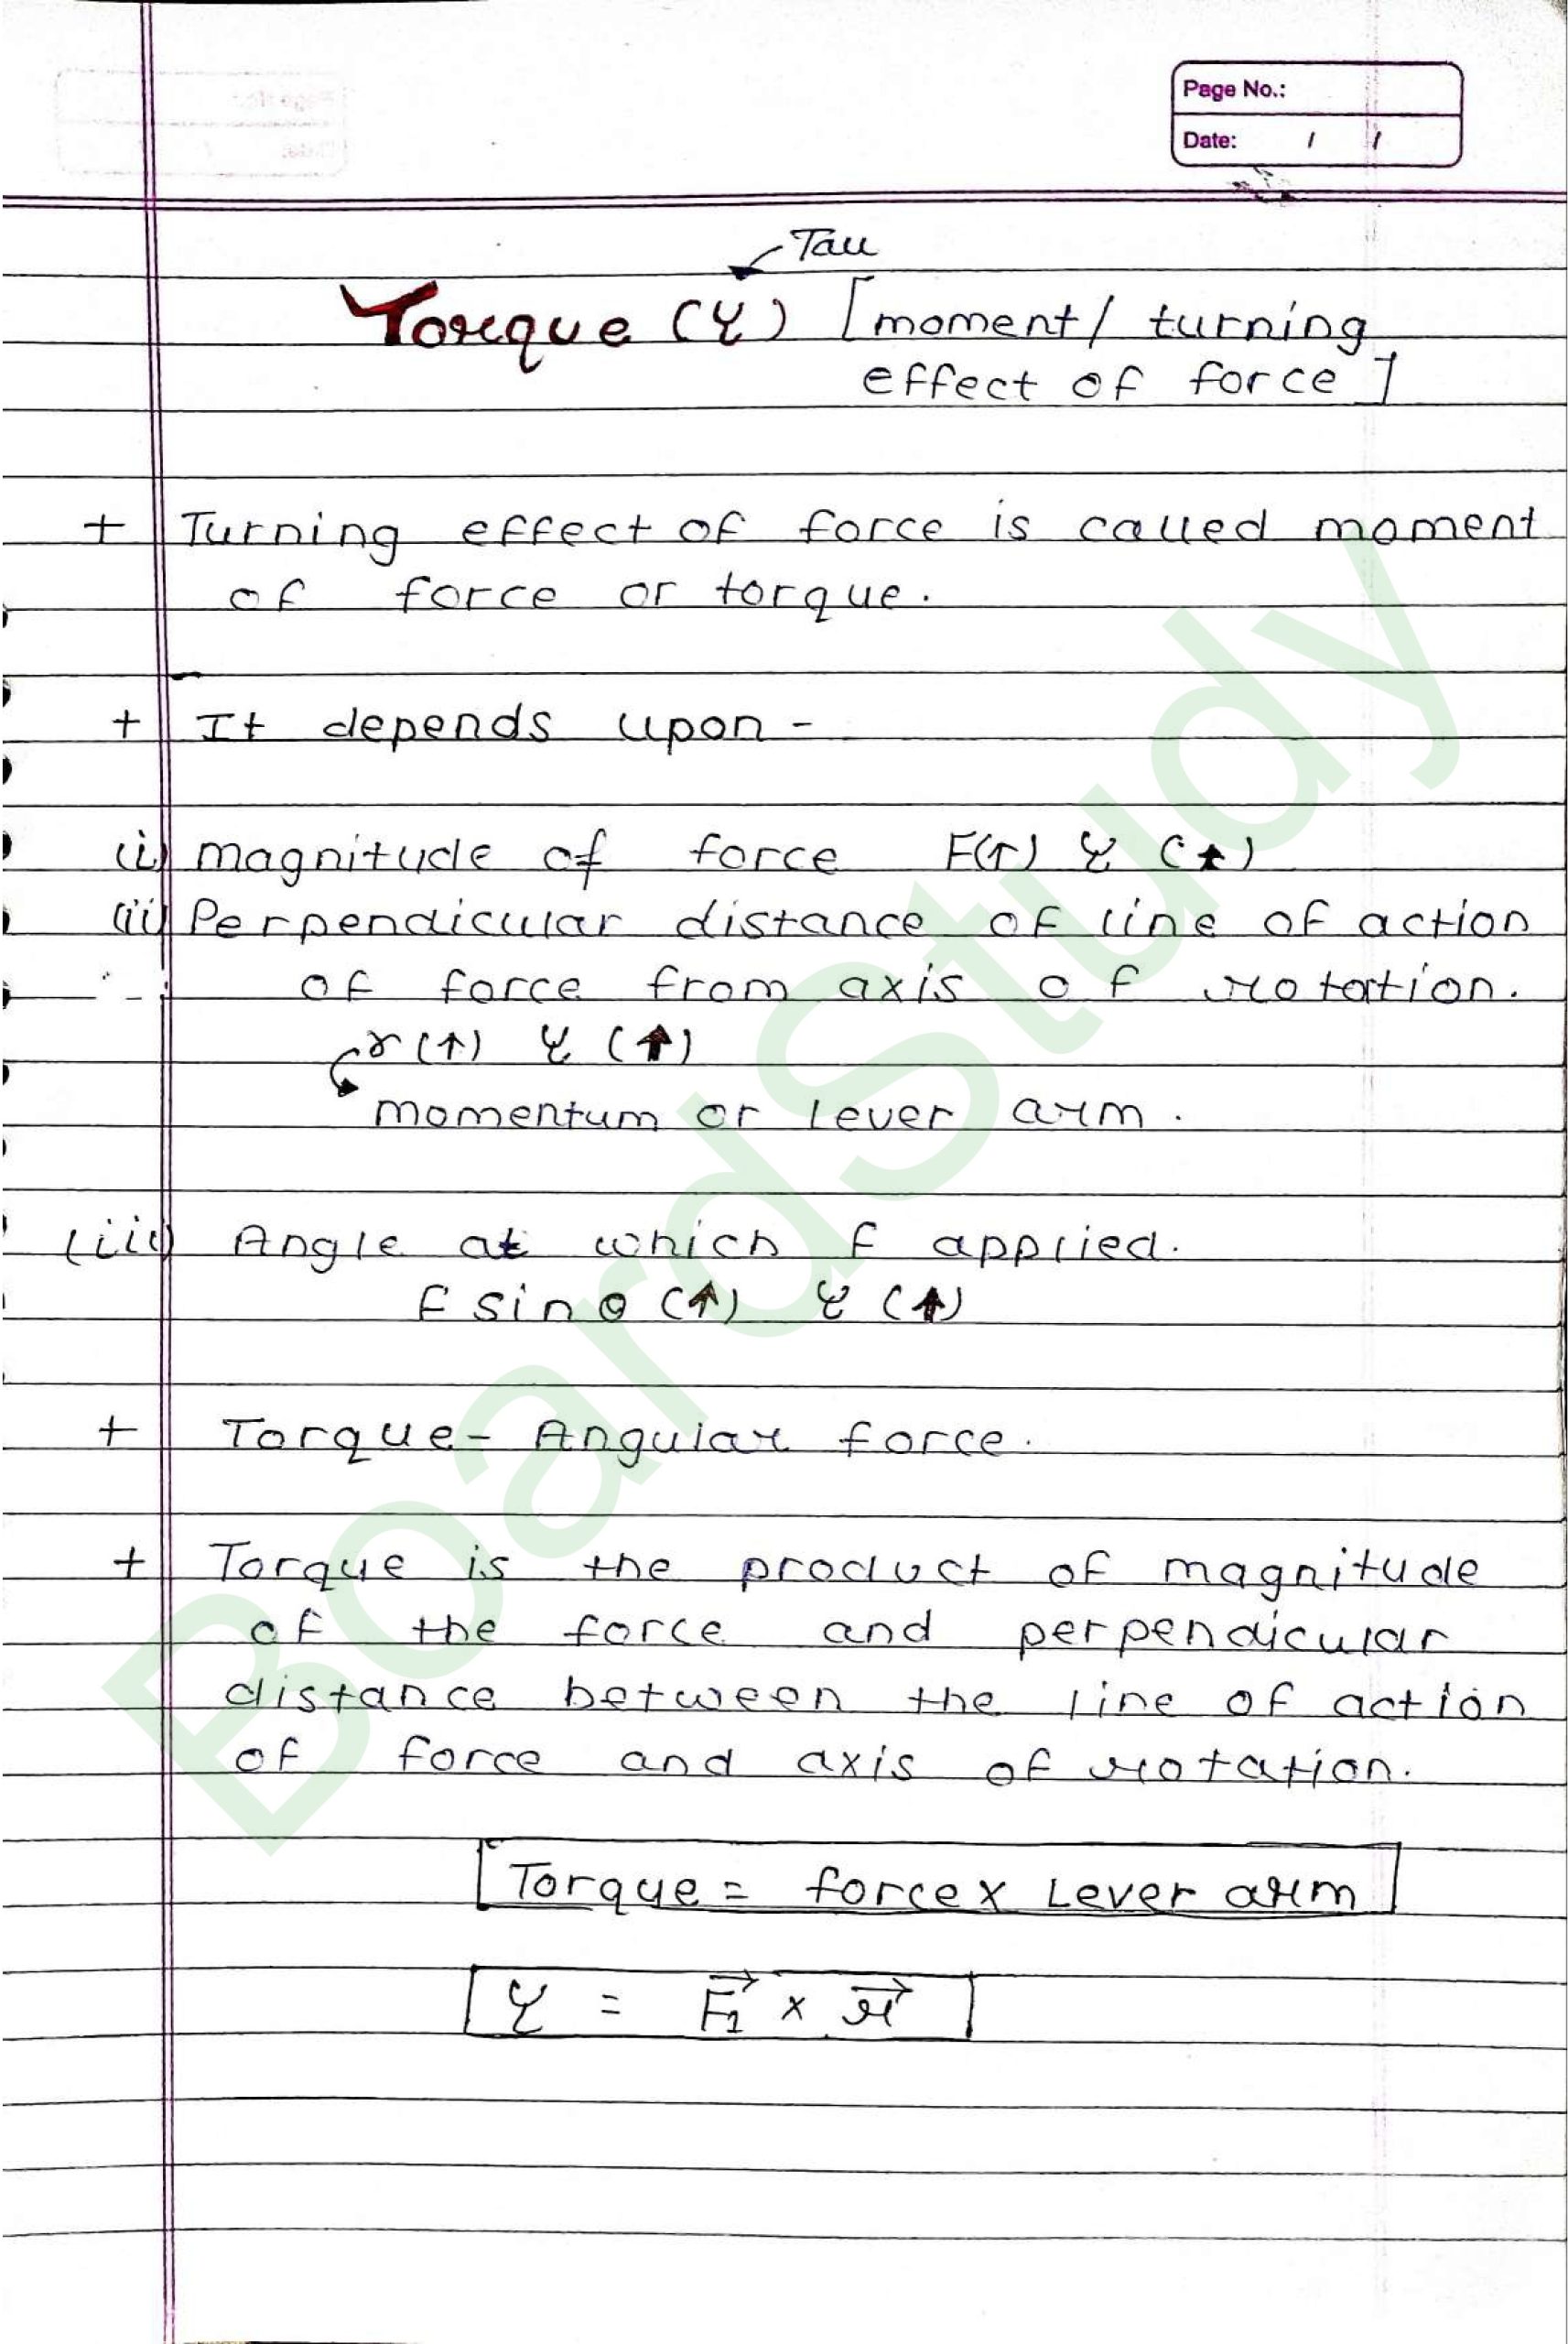 Page No.:
Date: / /
Tau
Torque (τ) [moment/ turning
effect of force]
+ Turning effect of force is called moment
of force or torque.
+ It depends upon -
(i) magnitude of force F(↑) τ (↑)
(ii) Perpendicular distance of line of action
of force from axis of rotation.
r (↑) τ (↑)
momentum or Lever arm.
(iii) Angle at which F applied.
F sin θ (↑) τ (↑)
+ Torque - Angular force.
+ Torque is the product of magnitude
of the force and perpendicular
distance between the line of action
of force and axis of rotation.
Torque = force x Lever arm
τ = F⃗₁ × r⃗
BoardStudy